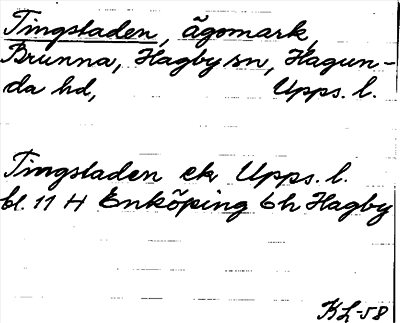 Tingstaden, ägomark,
Brunna, Hagby sn, Hagun-
da hd, Upps. l.
Tingstaden ek Upps. l.
bl. 11 H Enköping 6h Hagby
KL-58